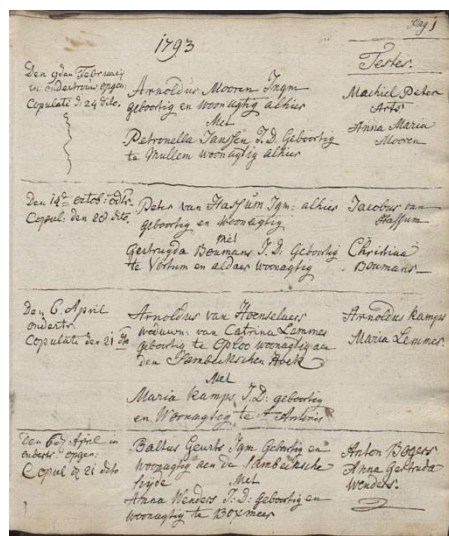 Pag 1
1793
Testes.
Den 9den Februarij
in ondertrouw opgen:
Copulati d: 24 dito.
Arnoldus Mooren Jngm
geboortig en woonagtig alhier
Met
Petronella Janssen J.D. Geboortig
te Mullem woonagtig alhier
Machiel Peter
Arts
Anna Maria
Mooren
Den 14de octob: odtr.
Copul: den 28 dito.
Peter van Hassum Jgm: alhier
geboortig en woonagtig
met
Gertruyda Boumans J.D. Geboortig
te Vortum en aldaer woonagtig
Jacobus van
Hassum
Christina
Boumans
Den 6. April
ondertr.
Copulati den 21 dto
Arnoldus van Hoenselaers
weduwn: van Catrina Lemmes
geboortig te Oploo woonagtig aen
den Sambeekschen Hoek
Met
Maria Kamps J.D: geboortig
en Woonagtig te St Antonis
Arnoldus Kamps
Maria Lemmes
Den 6 April in
ondertr: opgen:
Copul d: 21 dito
Baltus Geurts Jgm Geboortig en
woonagtig aen de Sambeeksche
zijde Met
Anna Wenders J:D: geboortig en
woonagtig te Boxmeer
Anton Bogers
Anna Gertruda
Wenders.